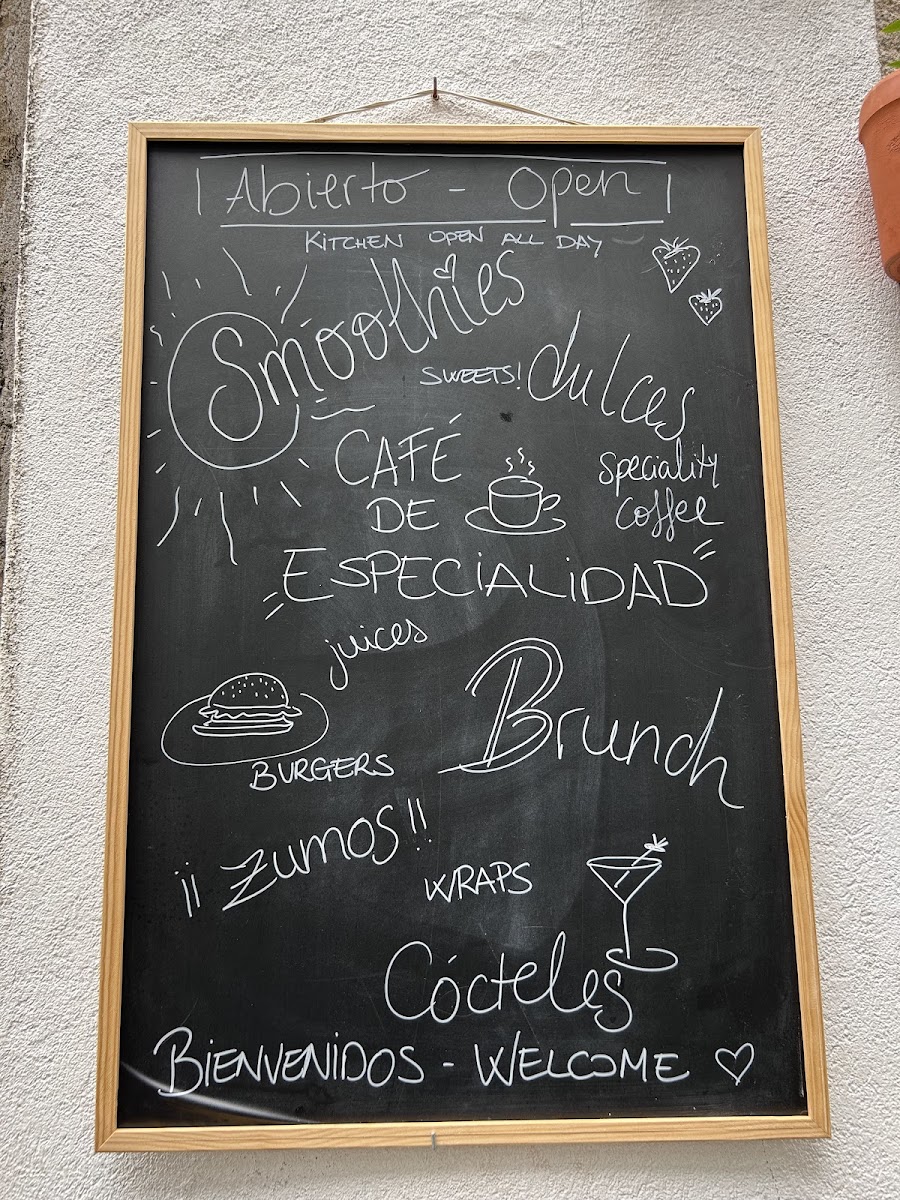 Abierto - Open
KITCHEN OPEN ALL DAY
Smoothies
SWEETS! dulces
CAFÉ
DE
ESPECIALIDAD
Speciality
coffee
juices
Brunch
BURGERS
¡¡ Zumos!!
WRAPS
Cócteles
BIENVENIDOS - WELCOME